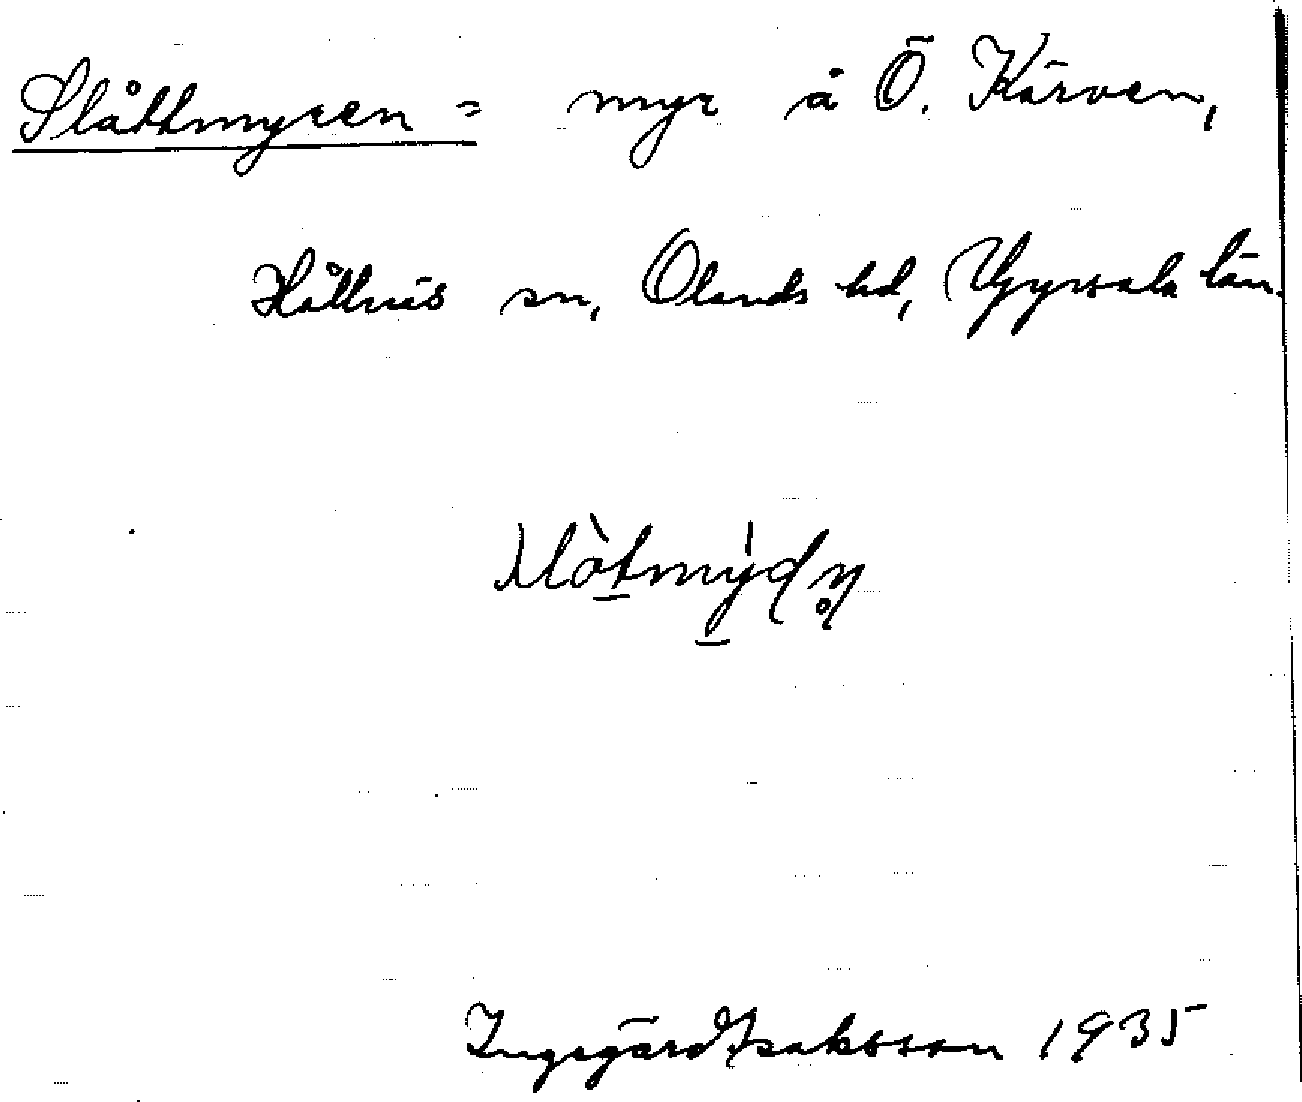 Slåttmyren = myr å Ö. Kärven,
Hållnäs sn, Olands hd, Uppsala län.
Ingegärd Isaksson 1935